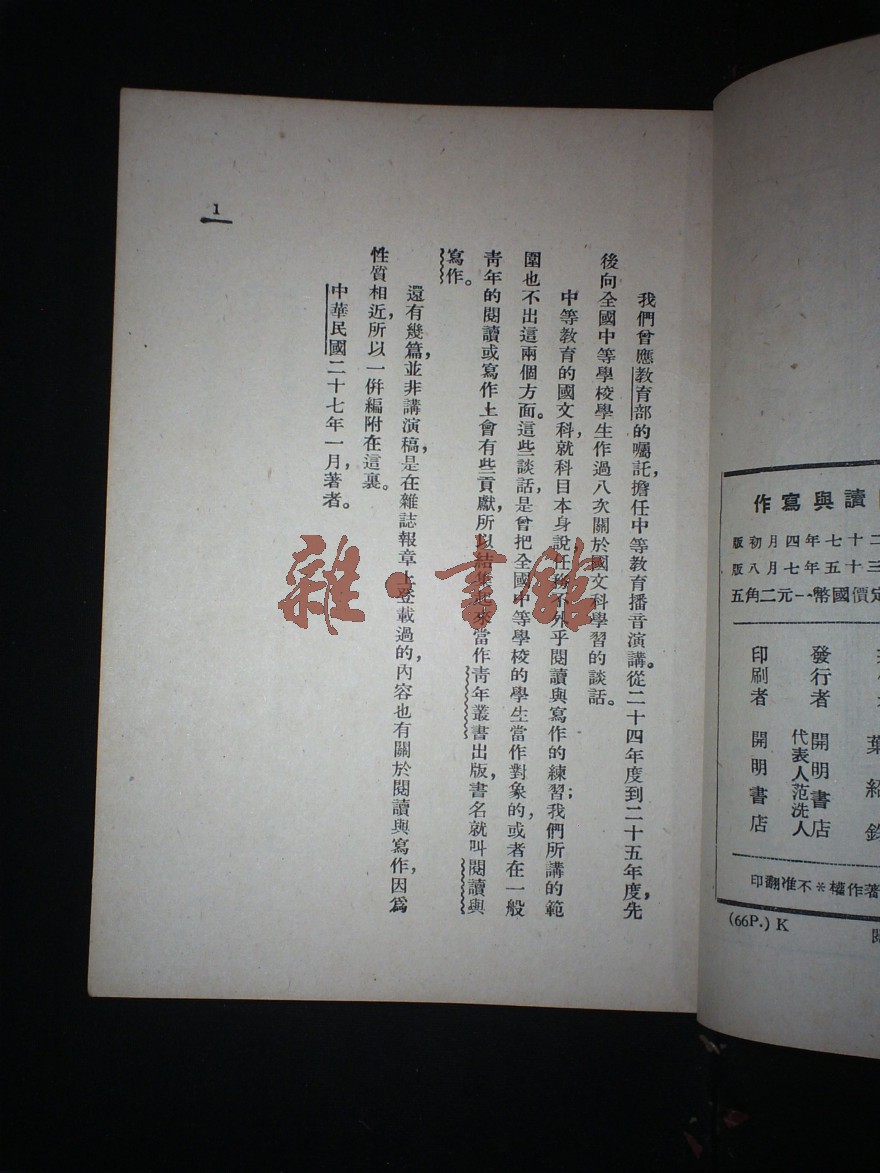 1
我們曾應教育部的囑託，擔任中等教育播音演講。從二十四年度到二十五年度，先
後向全國中等學校學生作過八次關於國文科學習的談話。
中等教育的國文科，就科目本身說，任務不外乎閱讀與寫作的練習；我們所講的範
圍也不出這兩個方面。這些談話，是曾把全國中等學校的學生當作對象的，或者在一般
青年的閱讀或寫作上會有些貢獻，所以結集起來當作青年叢書出版，書名就叫閱讀與
寫作。
還有幾篇，並非講演稿，是在雜誌報章上登載過的，內容也有關於閱讀與寫作，因爲
性質相近，所以一併編附在這裏。
中華民國二十七年一月，著者。
雜·書館
作寫與讀
版初月四年七十二
版八月七年五十三
五角二元一幣國價定
葉紹
發行者 開明書店
代表人范洗人
印刷者 開明書店
印翻准不*權作著
(66P.) K